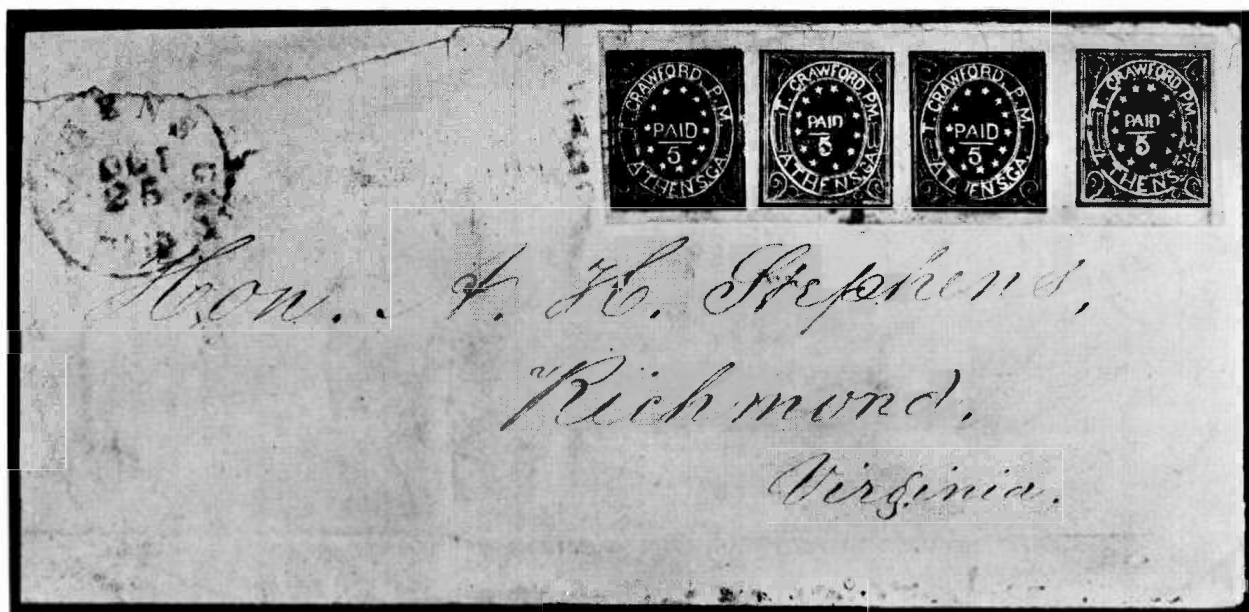 ATHENS GA.
OCT
25
PAID
T. CRAWFORD, P.M.
PAID
5
ATHENS,GA.
T. CRAWFORD, P.M.
PAID
5
ATHENS,GA.
T. CRAWFORD, P.M.
PAID
5
ATHENS,GA.
T. CRAWFORD, P.M.
PAID
5
ATHENS
Hon. A. H. Stephens,
Richmond,
Virginia.